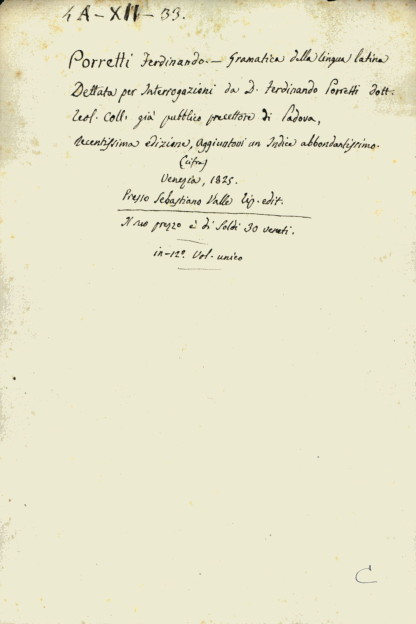 4A-XII-33.
Porretti Ferdinando.— Gramatica della lingua latina
Dettata per Interrogazioni da D. Ferdinando Porretti dott.
teol. Coll. già pubblico precettore di Padova,
recentissima edizione, aggiuntovi un Indice abbondantissimo.
(cifra)
Venezia, 1825.
Presso Sebastiano Valle tip. edit.
Il suo prezzo è di Soldi 30 veneti.
in-12º. Vol. unico
C